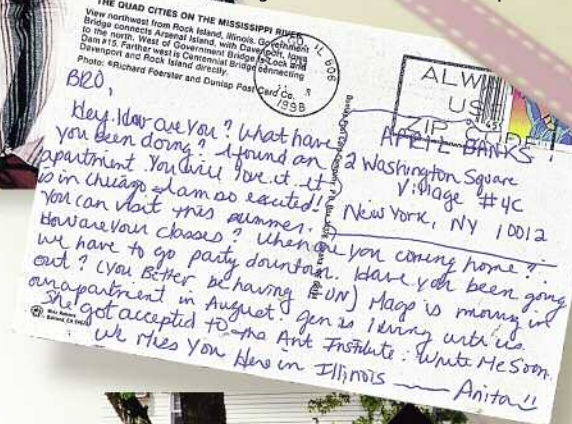 THE QUAD CITIES ON THE MISSISSIPPI RIVER
View northwest from Rock Island, Illinois. Government
Bridge connects Arsenal Island, with Davenport, Iowa
to the north. West of Government Bridge is Lock and
Dam #15. Farther west is Centennial Bridge connecting
Davenport and Rock Island directly.
Photo: ©Richard Foerster and Dunlap Post Card Co.
IL 606
1998
ALW
US
ZIP CODE
BRO,
Hey. How are you? What have
you been doing? I found an
apartment. You will love it. it
is in Chicago. I am so excited!
You can visit this summer.
How are your classes? When are you coming home?
we have to go party downtown. Have you been going
out? (you Better be having FUN) Mags is moving in
our apartment in August. Jen is living with us.
She got accepted to the Art Institute. Write Me Soon.
We Miss You Here in Illinois — Anita!!
APRIL BANKS
2 Washington Square
Village #4C
New York, NY 10012